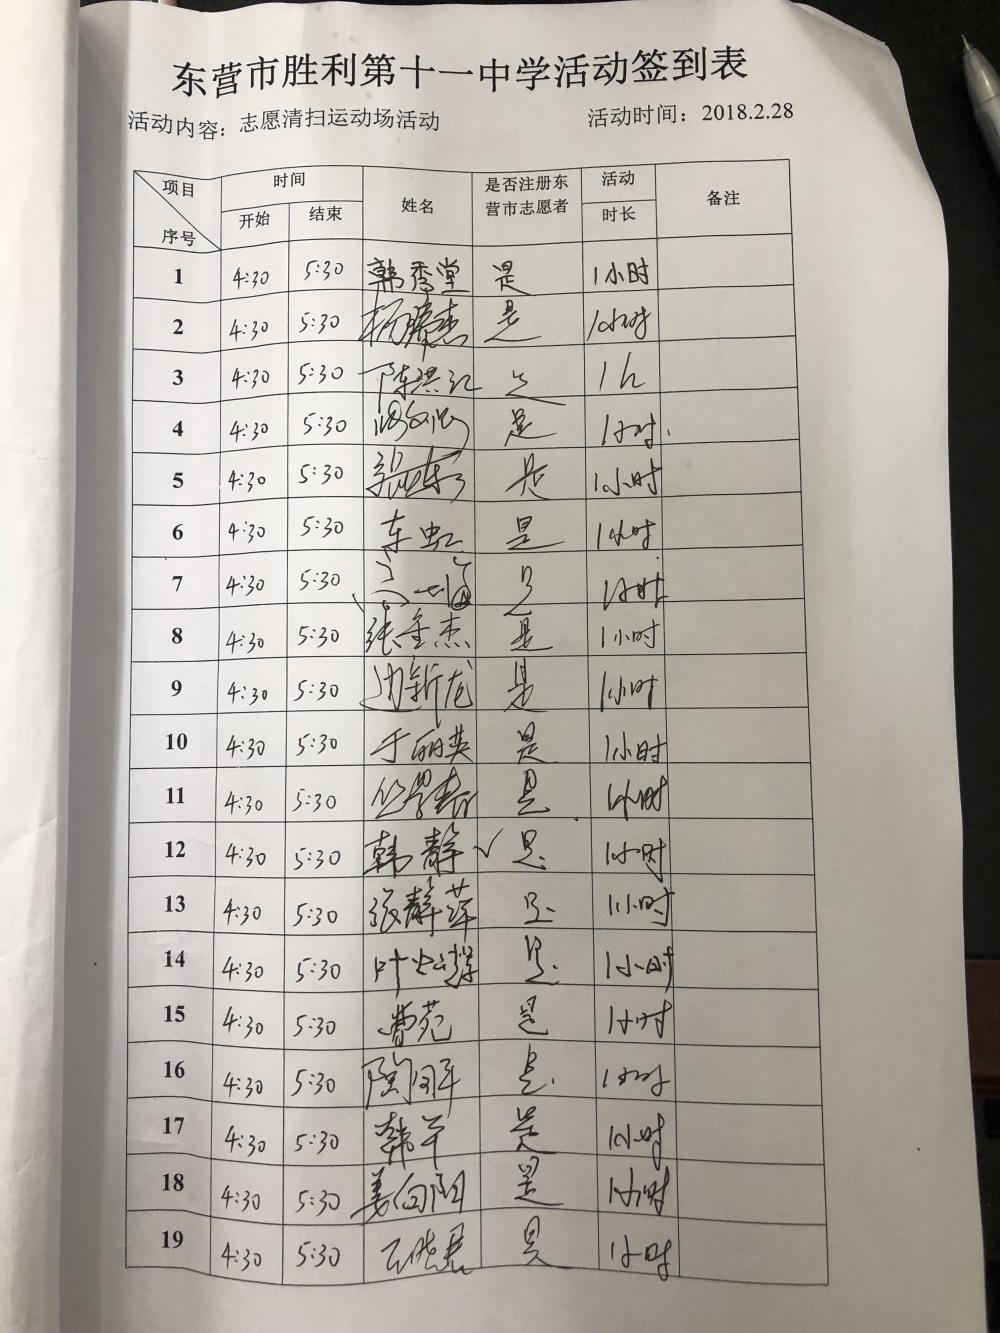 东营市胜利第十一中学活动签到表
活动内容：志愿清扫运动场活动 活动时间：2018.2.28
项目 时间 姓名 是否注册东营市志愿者 活动时长 备注
序号 开始 结束
1 4:30 5:30 韩秀堂 是 1小时
2 4:30 5:30 杨 杰 是 1小时
3 4:30 5:30 陈洪江 是 1h
4 4:30 5:30 是 1小时.
5 4:30 5:30 是 1小时
6 4:30 5:30 车虹 是 1小时
7 4:30 5:30 是 1小时
8 4:30 5:30 张金杰 是 1小时
9 4:30 5:30 边新龙 是 1小时
10 4:30 5:30 于丽英 是 1小时
11 4:30 5:30 是 1小时
12 4:30 5:30 韩静 √ 是. 1小时
13 4:30 5:30 张静萍 是. 1小时
14 4:30 5:30 叶 是. 1小时
15 4:30 5:30 曹苑 是 1小时
16 4:30 5:30 是. 1小时
17 4:30 5:30 韩军 是 1小时
18 4:30 5:30 姜向阳 是 1小时
19 4:30 5:30 是 1小时